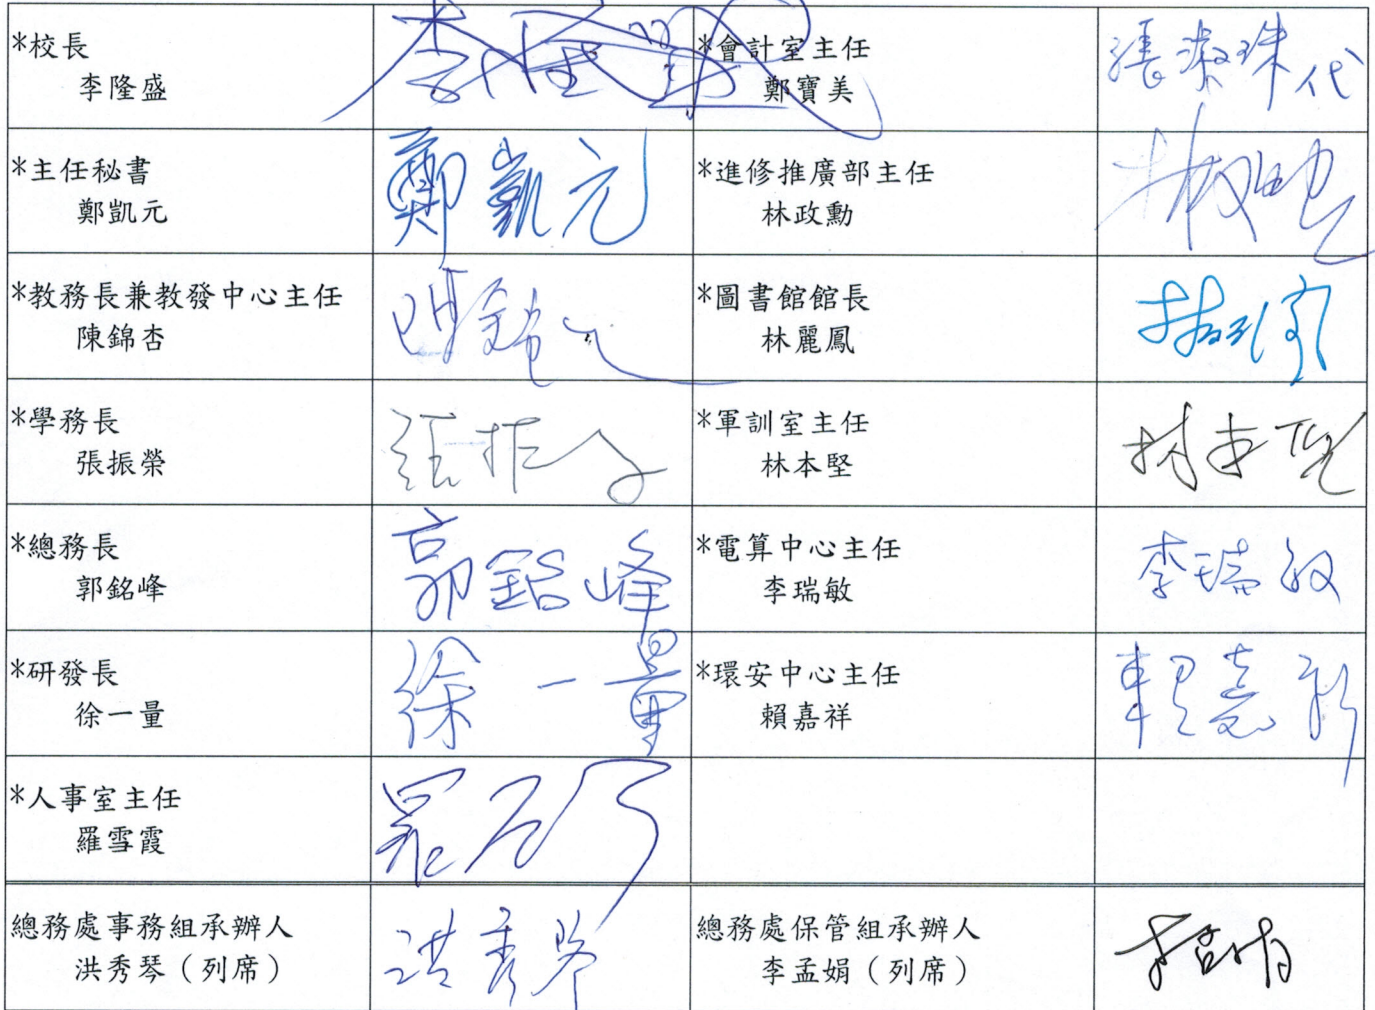 *校長
李隆盛
*會計室主任
鄭寶美
張淑珠代
*主任秘書
鄭凱元
鄭凱元
*進修推廣部主任
林政勳
*教務長兼教發中心主任
陳錦杏
*圖書館館長
林麗鳳
*學務長
張振榮
*軍訓室主任
林本堅
林本堅
*總務長
郭銘峰
郭銘峰
*電算中心主任
李瑞敏
李瑞敏
*研發長
徐一量
徐一量
*環安中心主任
賴嘉祥
*人事室主任
羅雪霞
總務處事務組承辦人
洪秀琴（列席）
洪秀琴
總務處保管組承辦人
李孟娟（列席）